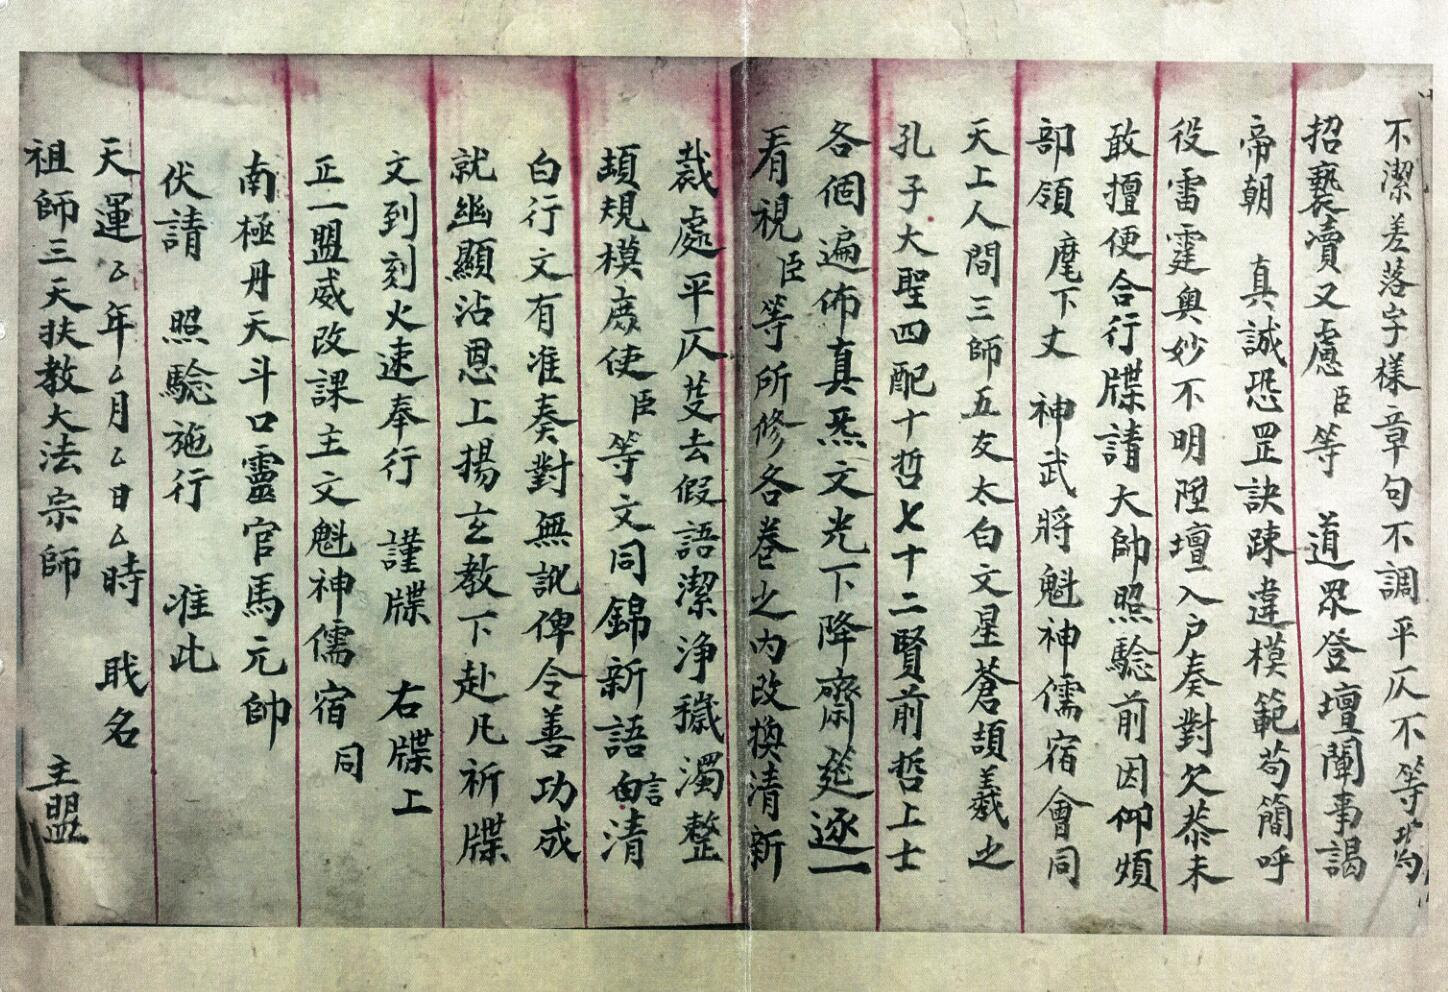 不潔差落字樣章句不調平仄不等
招褻瀆又慮臣等 道眾登壇闡事謁
帝朝 真誠恐罡訣踈違模範苟簡呼
役雷霆奥妙不明陞壇入户奏對欠恭未
敢擅便合行牒請大帥照驗前因仰煩
部領麾下丈 神武將魁神儒宿會同
天上人間三師五友太白文星蒼頡羲之
孔子大聖四配十哲七十二賢前哲上士
各個遍佈真炁文光下降齋筵逐一
看視臣等所修各卷之内改換清新
裁處平仄芟去假語潔浄穢濁整
頓規模庶使臣等文同錦新語言清
白行文有准奏對無訛俾令善功成
就幽顯沾恩上揚玄教下赴凡祈牒
文到刻火速奉行 謹牒 右牒上
正一盟威改課主文魁神儒宿同
南極丹天斗口靈官馬元帥
伏請 照驗施行 准此
天運乙年乙月乙日乙時 戝名
祖師三天扶教大法宗師 主盟